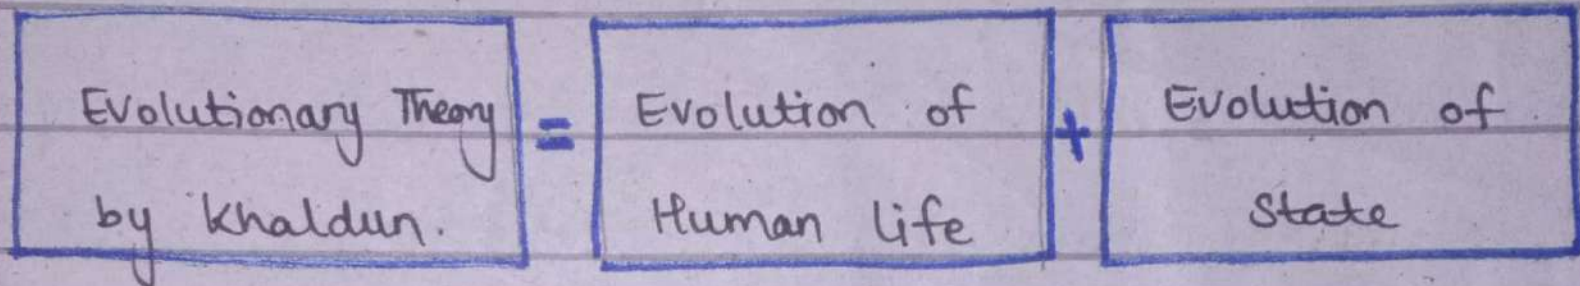 Evolutionary Theory
by Khaldun.
=
Evolution of
Human life
+
Evolution of
State